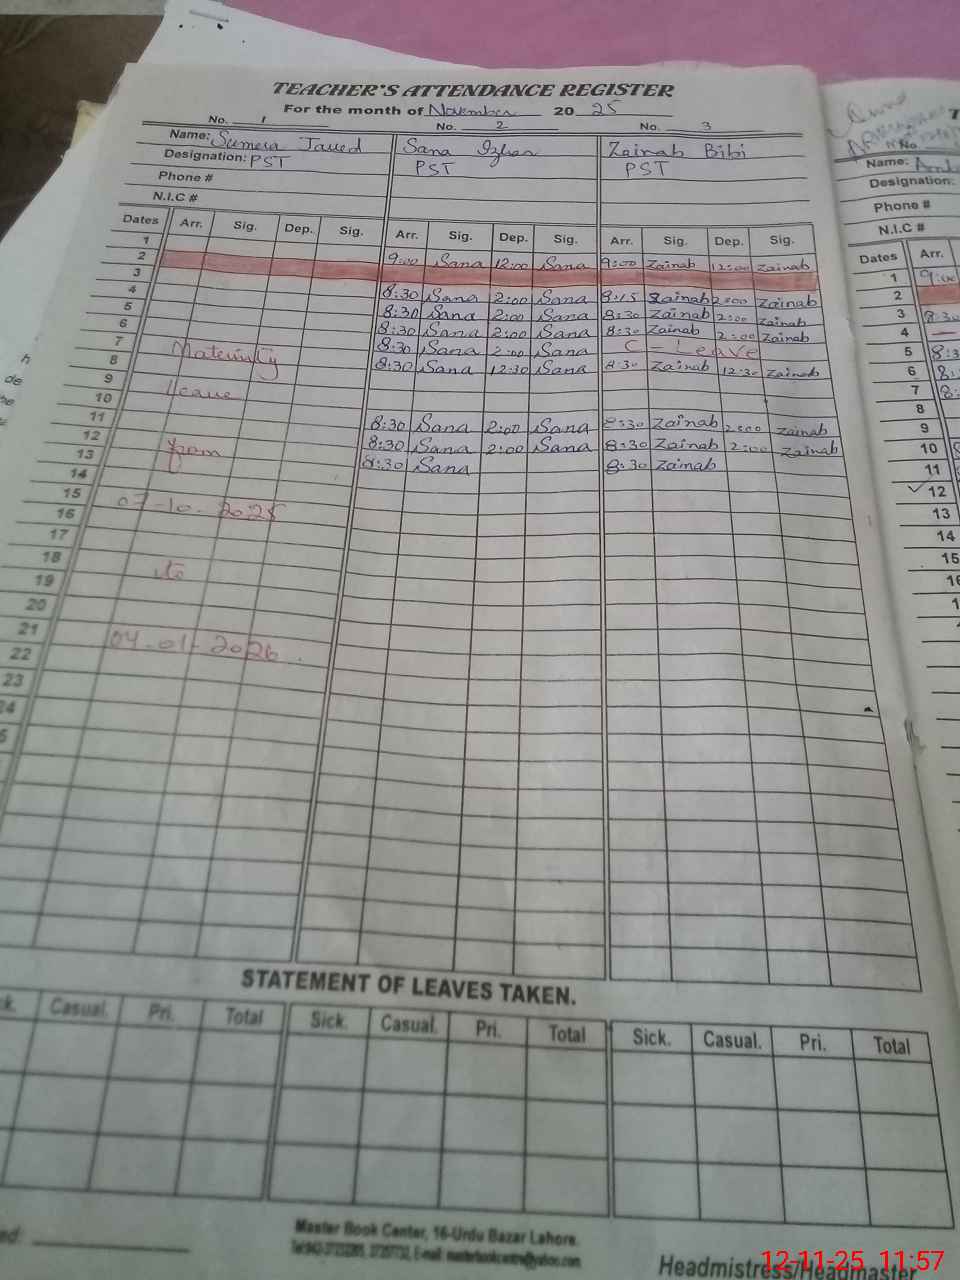 TEACHER'S ATTENDANCE REGISTER
For the month of November 2025
No. 1 No. 2 No. 3
Name: Sumera Javed Sana Izhar Zainab Bibi
Designation: PST PST PST
Phone #
N.I.C #
Dates Arr. Sig. Dep. Sig. Arr. Sig. Dep. Sig. Arr. Sig. Dep. Sig.
1 9:00 Sana 12:00 Sana 9:00 Zainab 12:00 Zainab
2
3 8:30 Sana 2:00 Sana 8:15 Zainab 2:00 Zainab
4 8:30 Sana 2:00 Sana 8:30 Zainab 2:00 Zainab
5 8:30 Sana 2:00 Sana 8:30 Zainab 2:00 Zainab
6 8:30 Sana 2:00 Sana C-Leave
7 Maternity 8:30 Sana 12:30 Sana 8:30 Zainab 12:30 Zainab
8
9 leave
10 8:30 Sana 2:00 Sana 8:30 Zainab 2:00 Zainab
11 8:30 Sana 2:00 Sana 8:30 Zainab 2:00 Zainab
12 from 8:30 Sana 8:30 Zainab
13
14
15 07-10-2025
16
17
18
19 to
20
21
22 04-01-2026.
23
24
STATEMENT OF LEAVES TAKEN.
Casual. Pri. Total Sick. Casual. Pri. Total Sick. Casual. Pri. Total
Master Book Center, 16-Urdu Bazar Lahore.
Headmistress/Headmaster
12-11-25 11:57
No.
Name:
Designation:
Phone #
N.I.C #
Dates Arr.
1 9:00
2
3 8:30
4
5
6
7
8
9
10
11
12
13
14
15
16